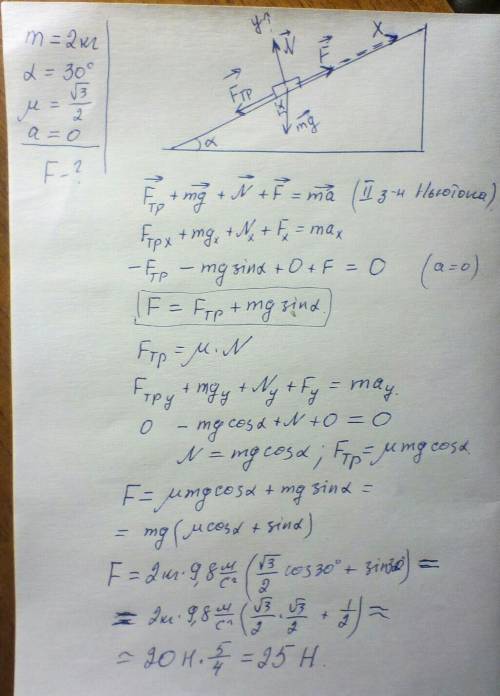 m = 2кг
α = 30°
μ = √3/2
a = 0
F - ?
y
N⃗
F⃗
x
F⃗тр
mg⃗
α
F⃗тр + mg⃗ + N⃗ + F⃗ = ma⃗ (II з-н Ньютона)
Fтрx + mgx + Nx + Fx = max
-Fтр - mg sinα + 0 + F = 0 (a=0)
F = Fтр + mg sinα.
Fтр = μ · N
Fтрy + mgy + Ny + Fy = may.
0 - mg cosα + N + 0 = 0
N = mg cosα ; Fтр = μmg cosα
F = μmg cosα + mg sinα =
= mg (μ cosα + sinα)
F = 2кг · 9,8 м/с² (√3/2 cos30° + sin30°) =
= 2кг · 9,8 м/с² (√3/2 · √3/2 + 1/2) ≈
≈ 20 Н · 5/4 = 25 Н.